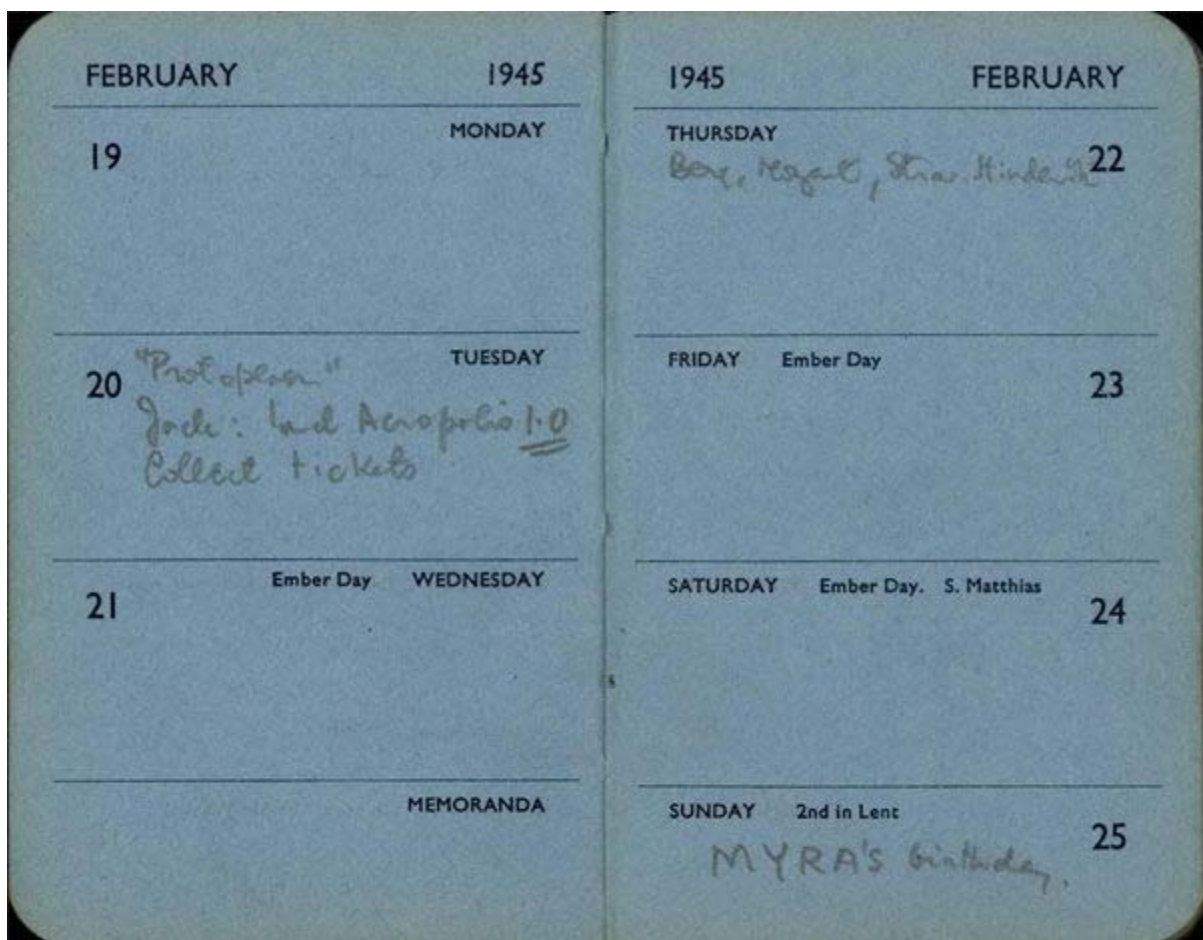 FEBRUARY 1945
MONDAY
19
TUESDAY
20
Jack: Acropolis 1.0
Collect tickets
Ember Day WEDNESDAY
21
MEMORANDA
1945 FEBRUARY
THURSDAY
22
Mozart,
FRIDAY Ember Day
23
SATURDAY Ember Day. S. Matthias
24
SUNDAY 2nd in Lent
25
MYRA'S birthday.